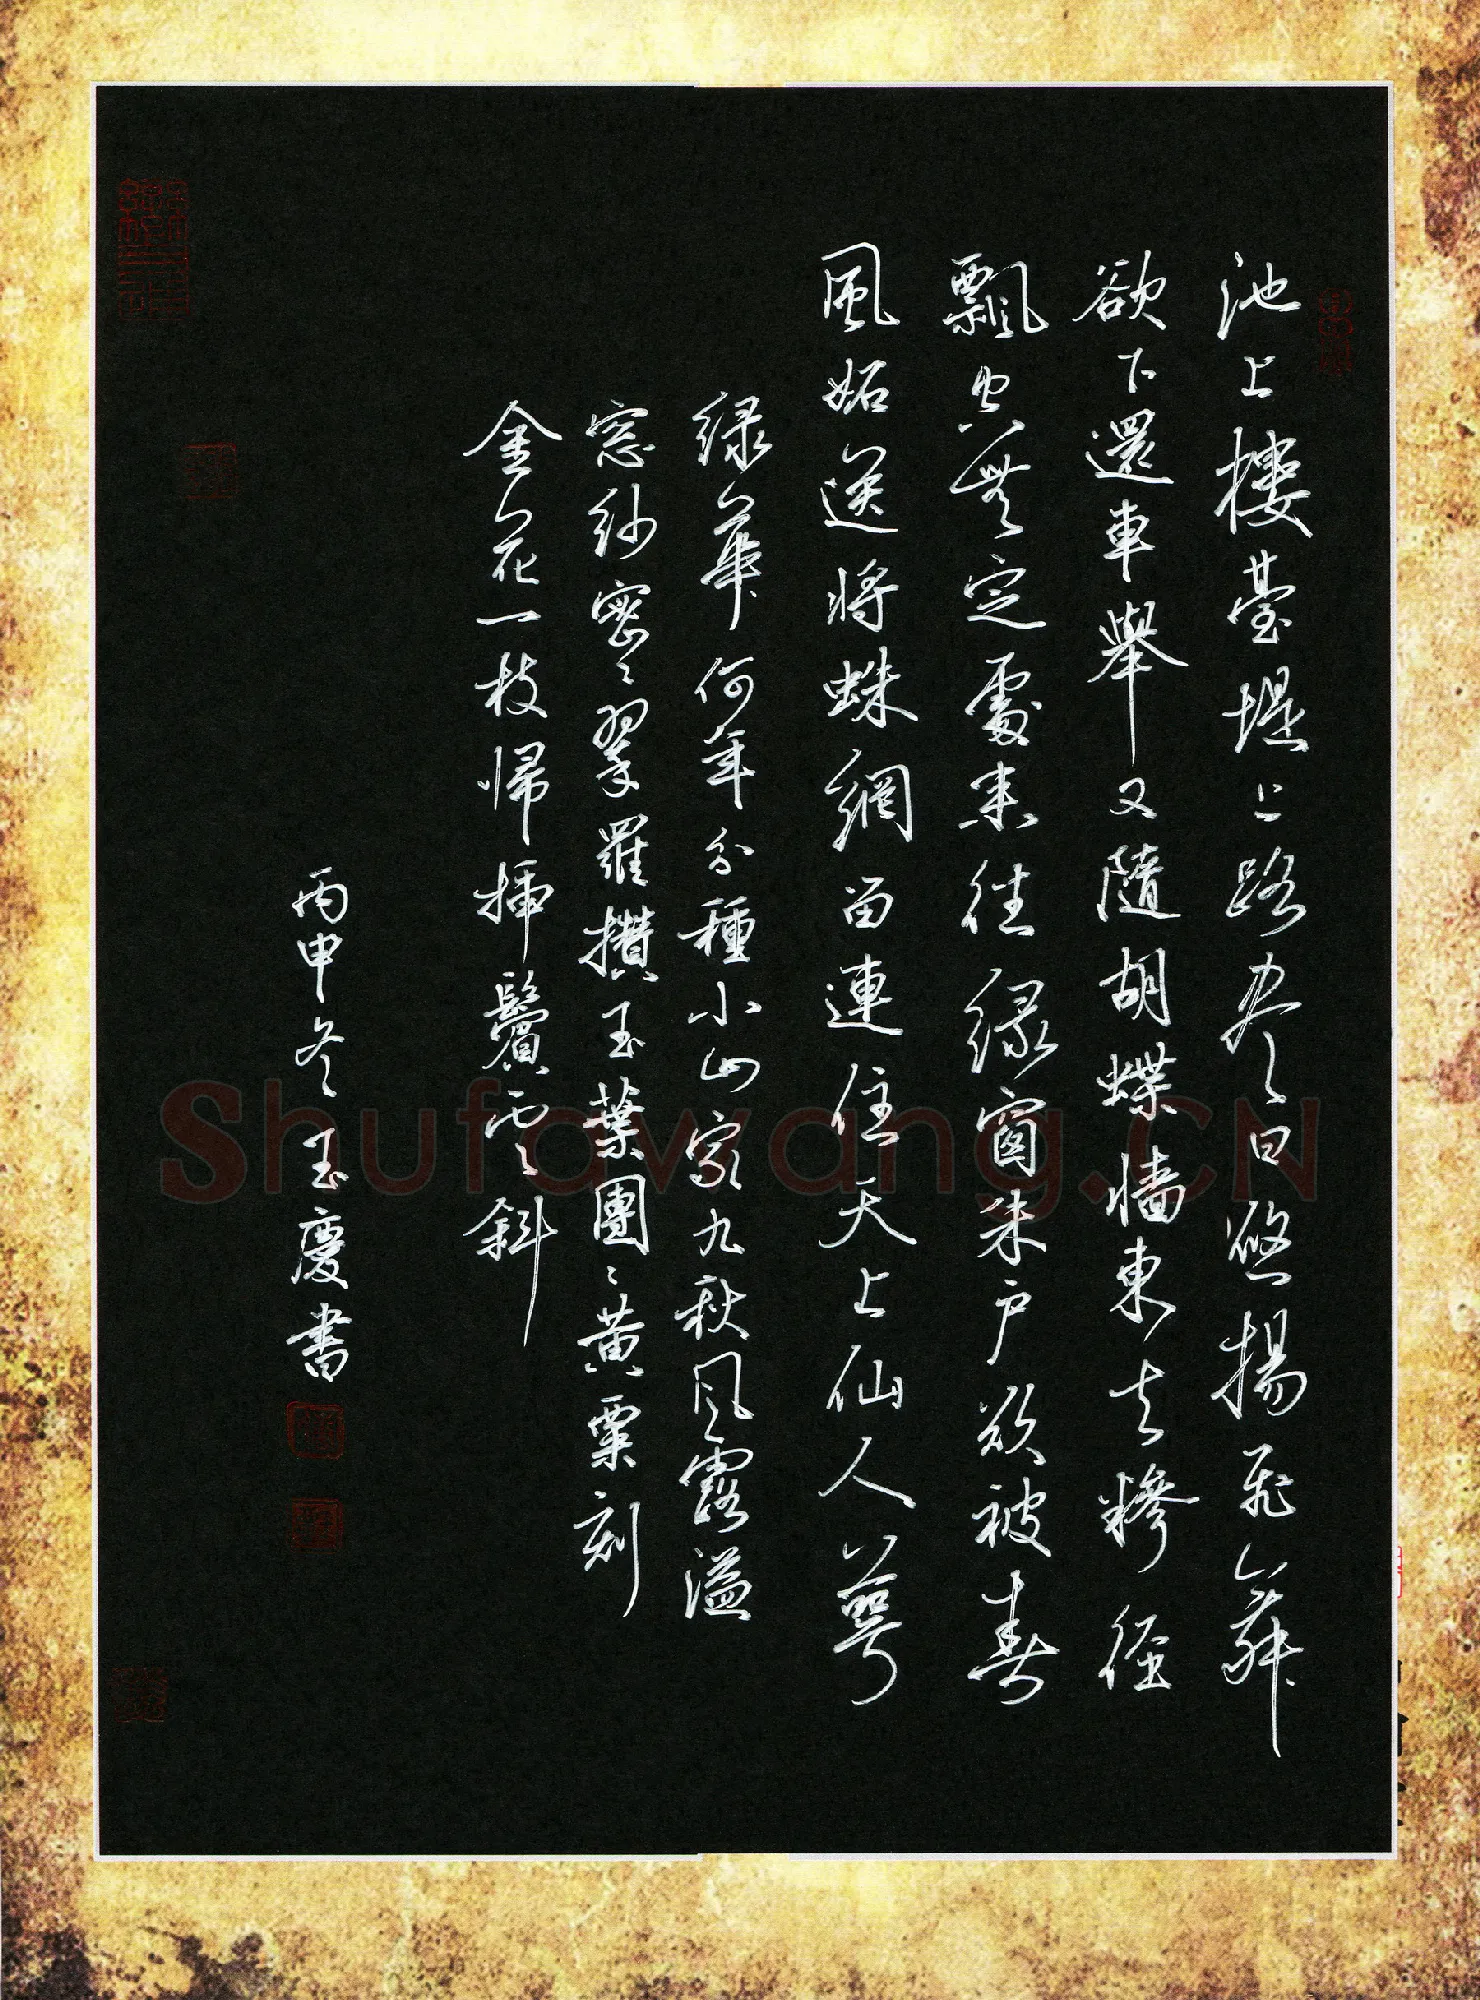 池上樓臺堤上路尽日悠揚飛舞
欲下還重舉又隨胡蝶墻東去糝徑
飄空無定處来往緑窗朱户欲被春
風妬送將蛛網留連住天上仙人萼
緑華何年分種小山家九秋風露溢
窓紗密々翠羅攢玉葉團々黄粟刻
金花一枝帰插鬢雲斜
丙申冬玉慶書
Shufawang.CN